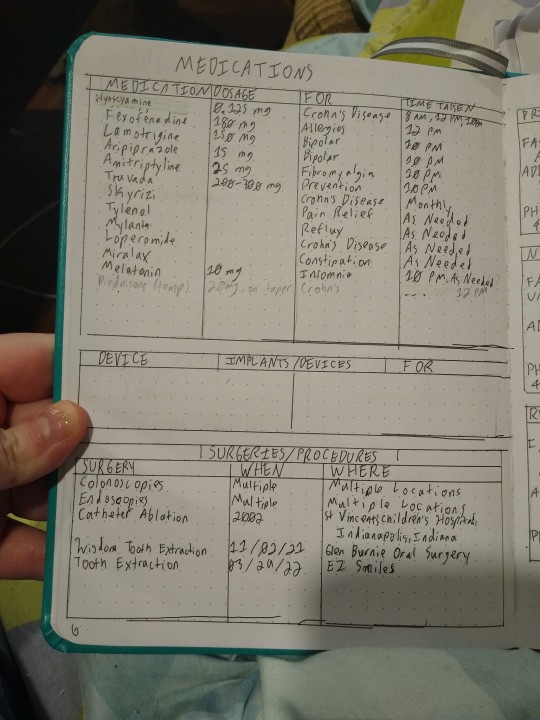 MEDICATIONS
MEDICATION DOSAGE FOR TIME TAKEN
Hyoscyamine 0.125 mg Crohn's Disease 8 AM, 12 PM, 10pm
Fexofenadine 180 mg Allergies 12 PM
Lamotrigine 150 mg Bipolar 10 PM
Aripiprazole 15 mg Bipolar 10 PM
Amitriptyline 25 mg Fibromyalgia 10 PM
Truvada 200-300 mg Prevention 10 PM
Skyrizi Crohn's Disease Monthly
Tylenol Pain Relief As Needed
Mylanta Reflux As Needed
Loperamide Crohn's Disease As Needed
Miralax Constipation As Needed
Melatonin 10 mg Insomnia 10 PM, As Needed
Prednisone (temp) 20mg, on taper Crohn's 12 PM
DEVICE IMPLANTS/DEVICES FOR
SURGERIES/PROCEDURES
SURGERY WHEN WHERE
Colonoscopies Multiple Multiple Locations
Endoscopies Multiple Multiple Locations
Catheter Ablation 2002 St Vincent's Children's Hospital,
Indianapolis, Indiana
Wisdom Tooth Extraction 11/02/21 Glen Burnie Oral Surgery
Tooth Extraction 03/24/22 EZ Smiles
6